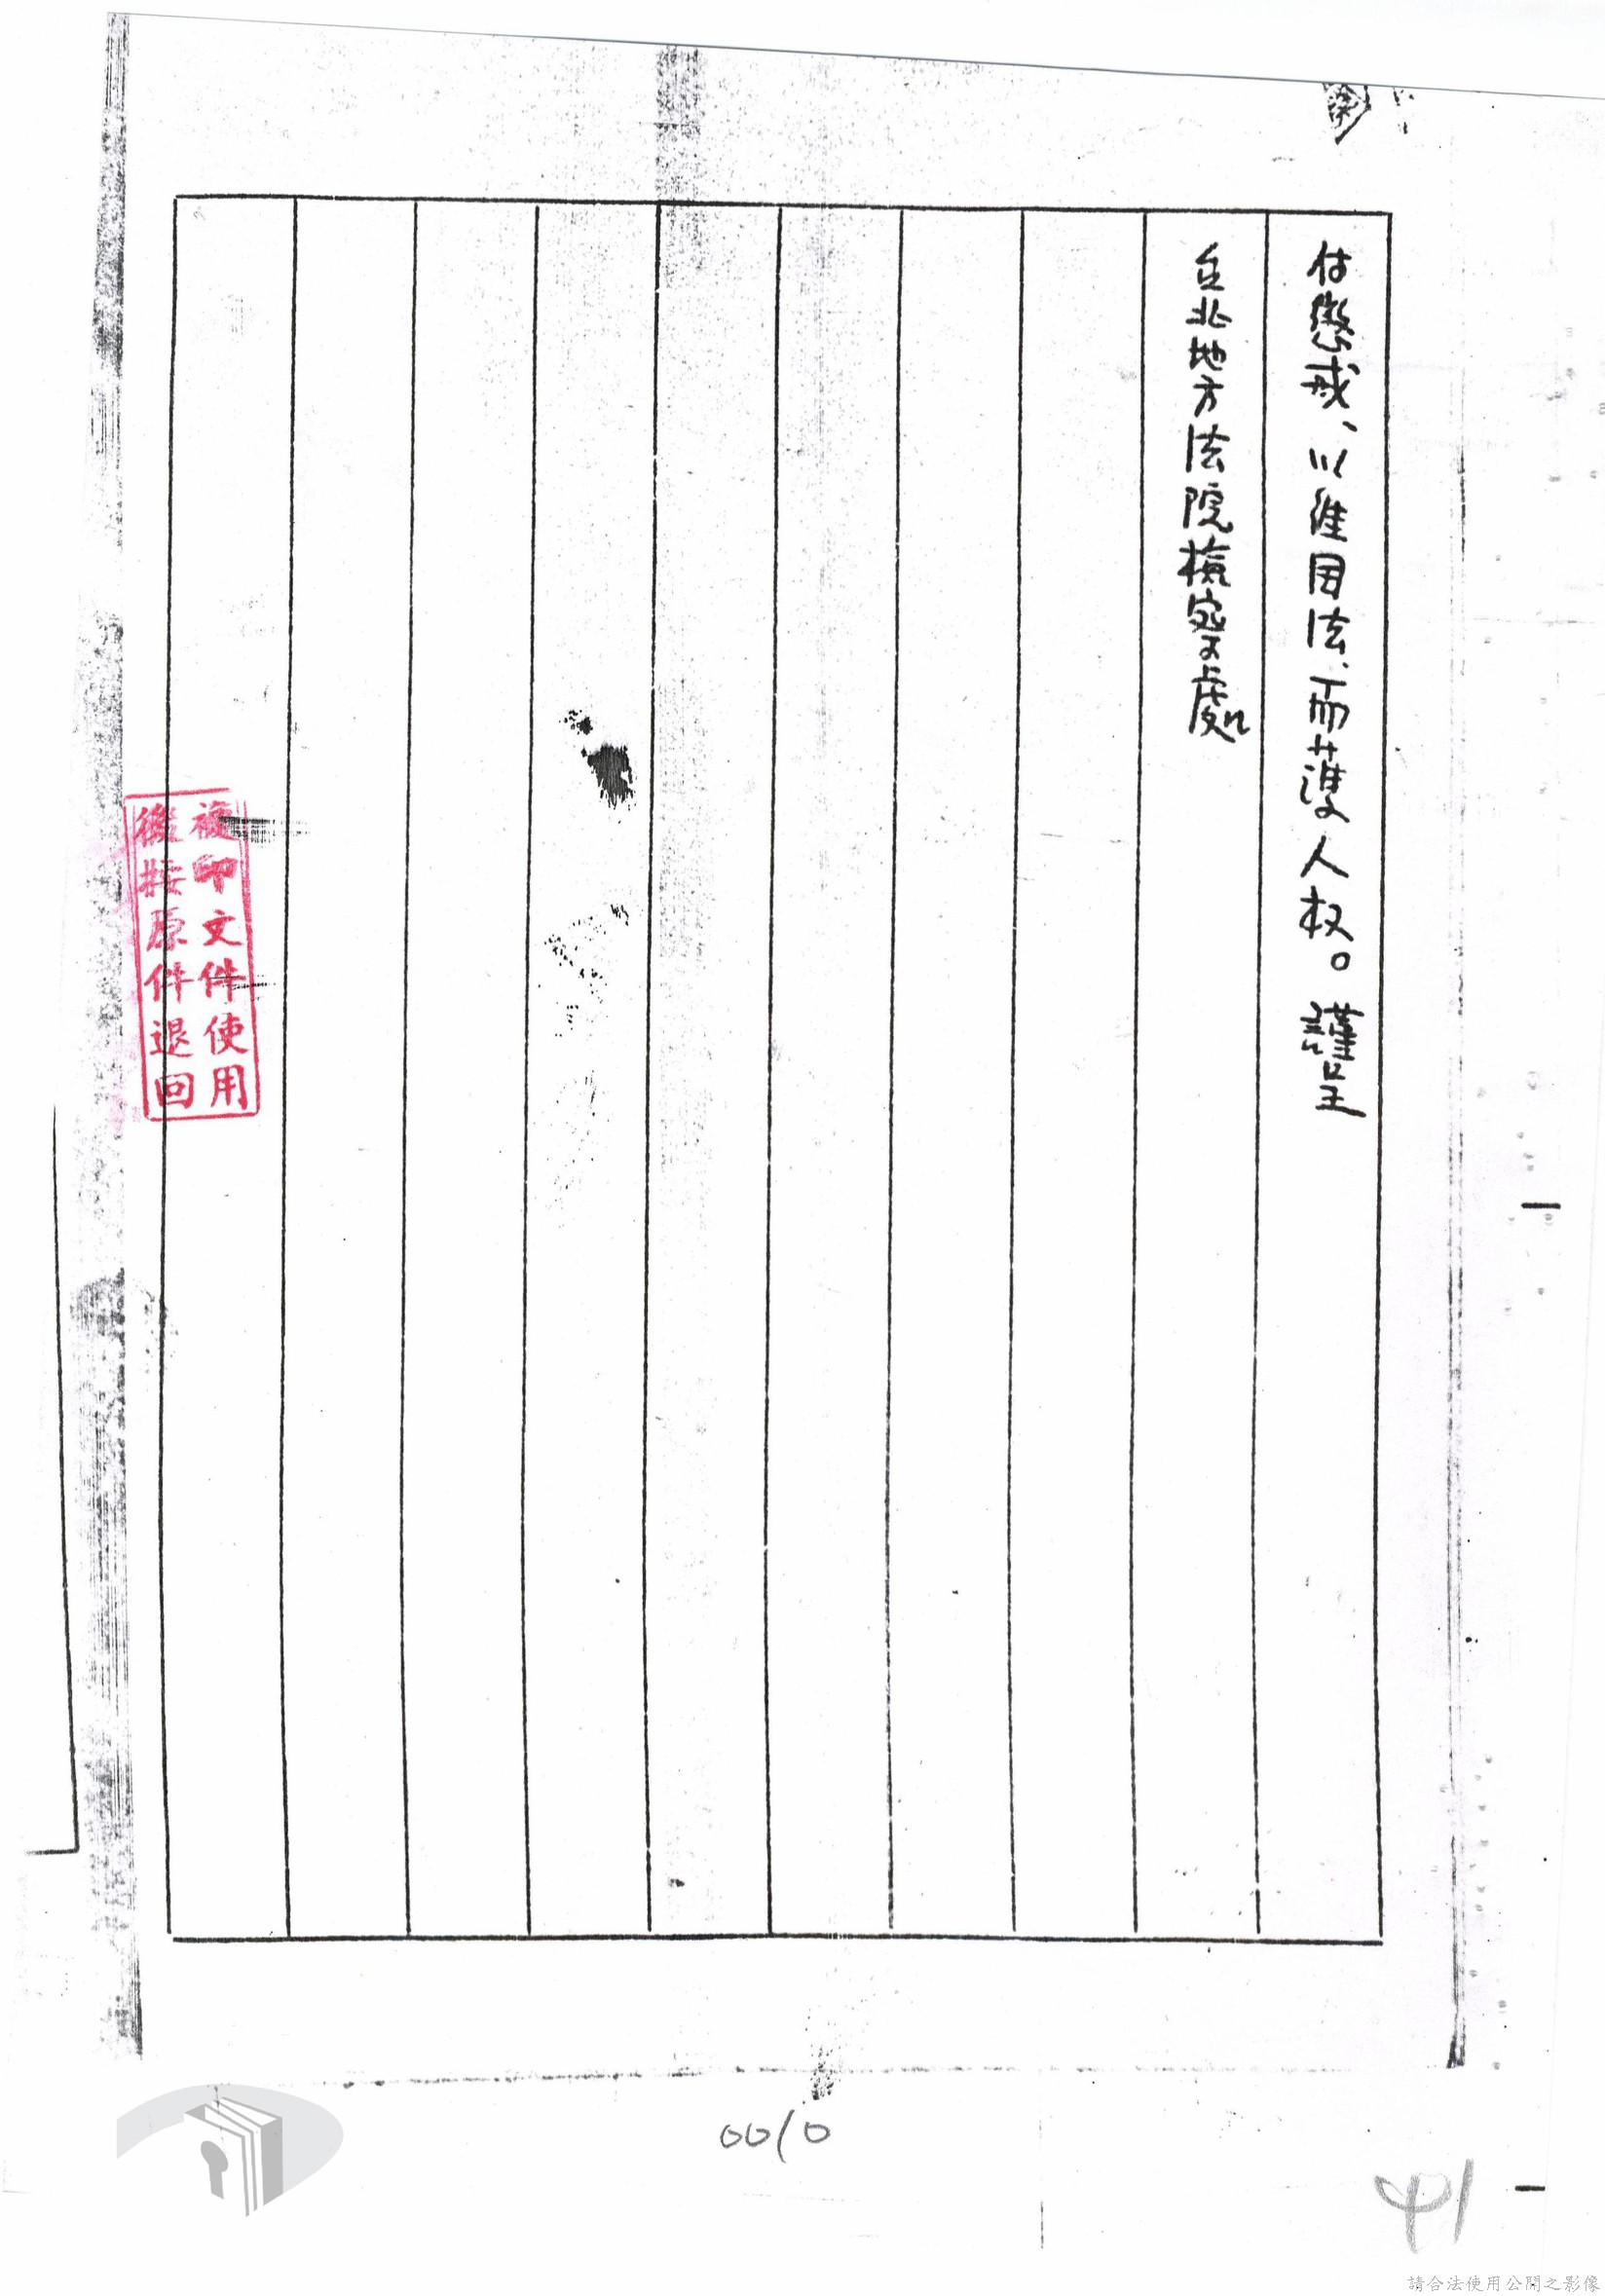 付懲戒、以維国法、而護人权。謹呈
台北地方法院檢察處
複印文件使用
後按原件退回
0010
41
請合法使用公開之影像